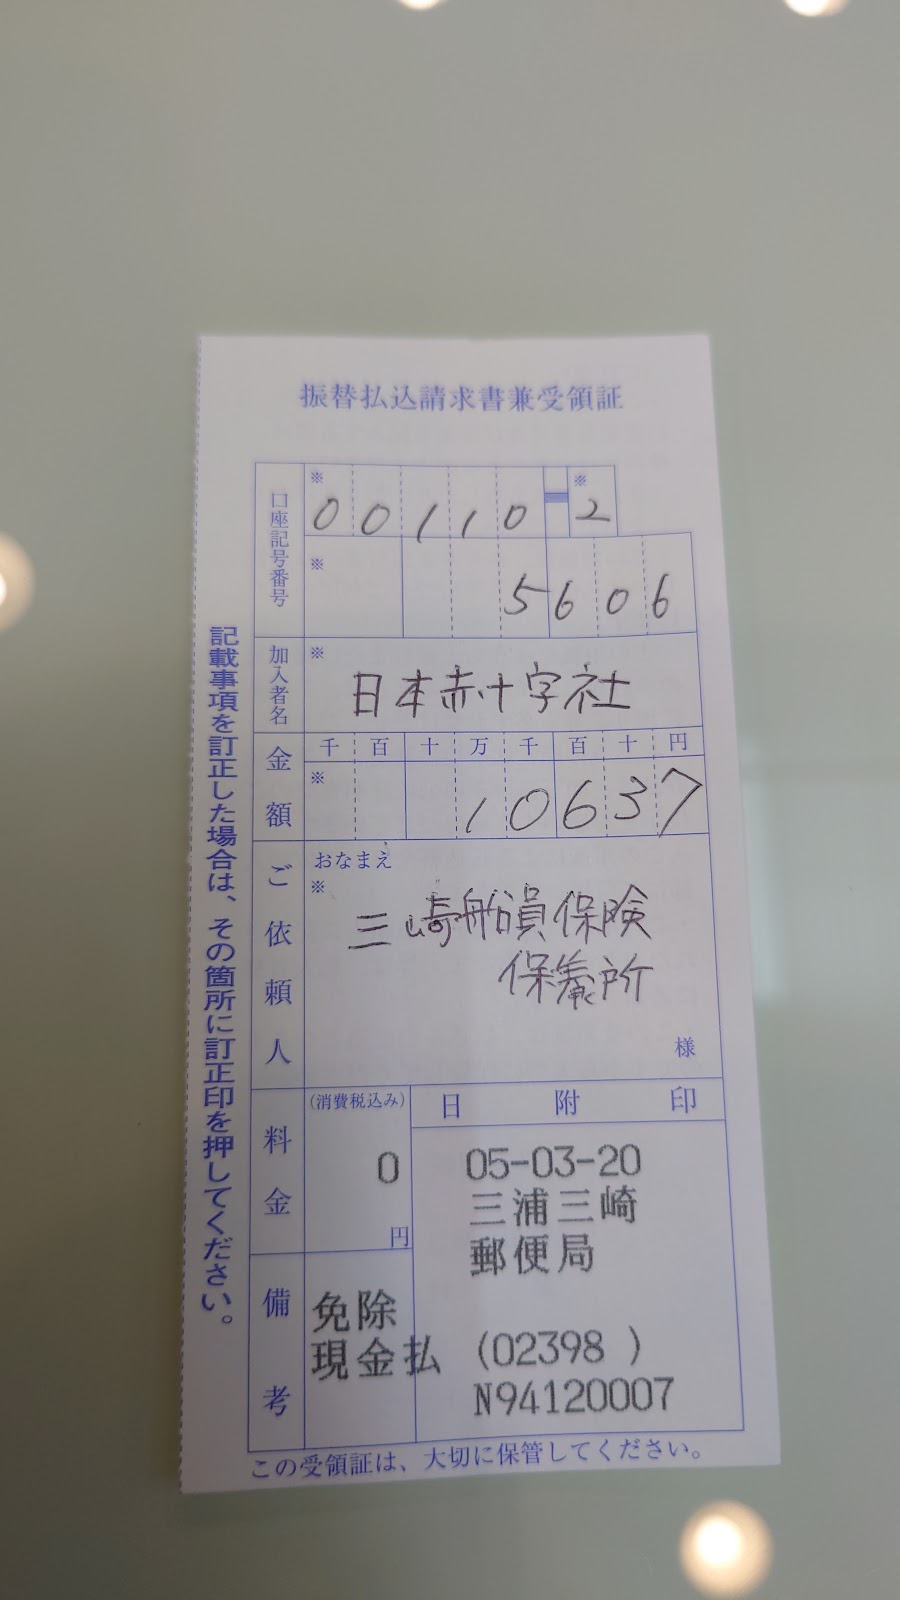 振替払込請求書兼受領証
口座記号番号
※ 00110 = ※ 2
※ 5606
加入者名
※ 日本赤十字社
金額
千 百 十 万 千 百 十 円
※ 10637
ご依頼人
おなまえ
※
三崎船員保険
保養所
様
料金
(消費税込み)
0
円
日附印
05-03-20
三浦三崎
郵便局
備考
免除
現金払 (02398 )
N94120007
この受領証は、大切に保管してください。
記載事項を訂正した場合は、その箇所に訂正印を押してください。